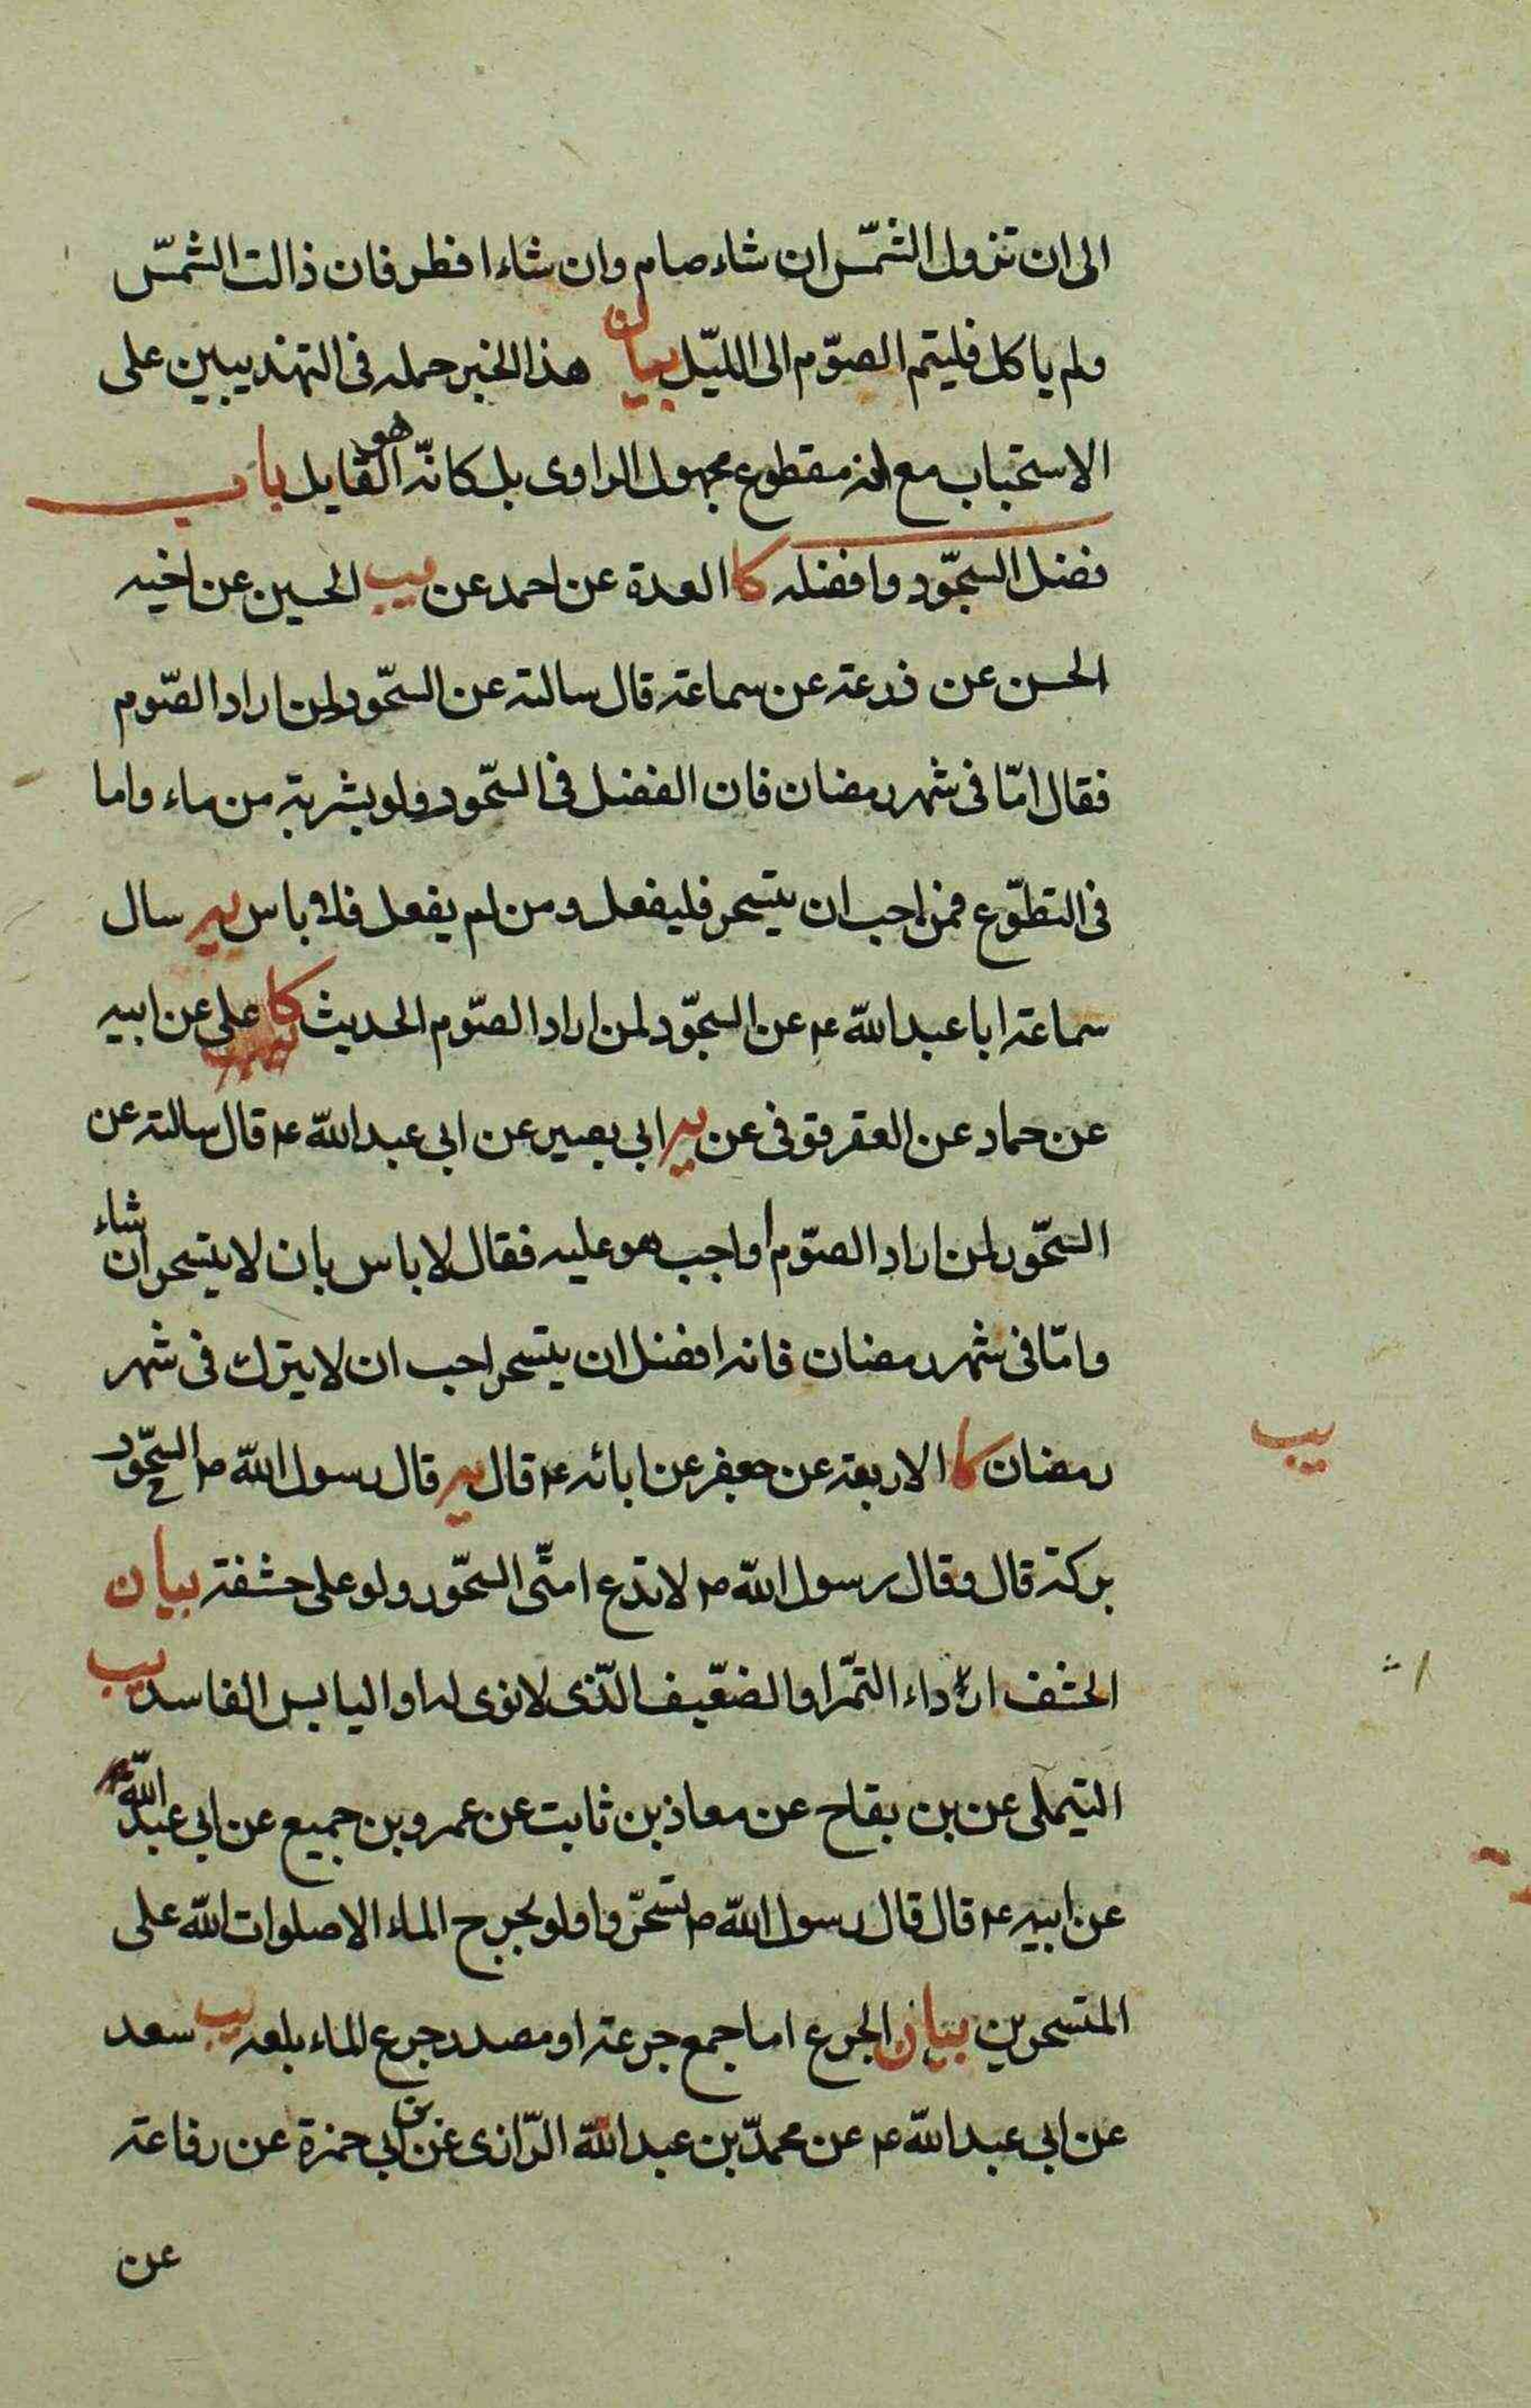 الى ان تزول الشمّس ان شاء صام وان شاء افطر فان ذالت الشمّس
ولم ياكل فليتم الصوّم الى الليّل بيان هذا الخبر حمله فى التهذيبين على
الاستحباب مع انه مقطوع مجهول الراوى بل كانّه هو القايل باب
فضل السحّور وافضله كا العدة عن احمد عن يب الحسين عن اخيه
الحسن عن زرعته عن سماعته قال سالته عن السحّور لمن اراد الصّوم
فقال امّا فى شهر رمضان فان الفضل فى السحّور ولو بشربة من ماء واما
فى التطوّع فمن احب ان يتسحر فليفعل ومن لم يفعل فلا باس يه سال
سماعته ابا عبد اللّه ع عن السحّور لمن اراد الصّوم الحديث كا على عن ابيه
عن حماد عن العقرقوفى عن يه ابى بصير عن ابى عبد اللّه ع قال سالته عن
السحّور لمن اراد الصوّم اواجب هو عليه فقال لا باس بان لا يتسحر ان شاء
وامّا فى شهر رمضان فانه افضل ان يتسحر احب ان لا يترك فى شهر
رمضان كا الاربعة عن جعفر عن ابائه ع قال يه قال رسول اللّه ص السحّور
يب
بركة قال وقال رسول اللّه ص لا تدع امتّى السحّور ولو على حشفة بيان
الحشف ارداء التمّر او الضعّيف الّذى لا نوى له او اليابس الفاسد يب
التيملى عن بن بقاح عن معاذ بن ثابت عن عمرو بن جميع عن ابى عبد اللّه ع
عن ابيه ع قال قال رسول اللّه ص تسّحروا ولو بجرح الماء الا صلوات اللّه على
المتسحرين بيان الجرع اما جمع جرعته او مصدر جرع الماء بلعه يب سعد
عن ابى عبد اللّه ع عن محمدّ بن عبد اللّه الرّازى عن بن ابى حمزة عن رفاعته
عن